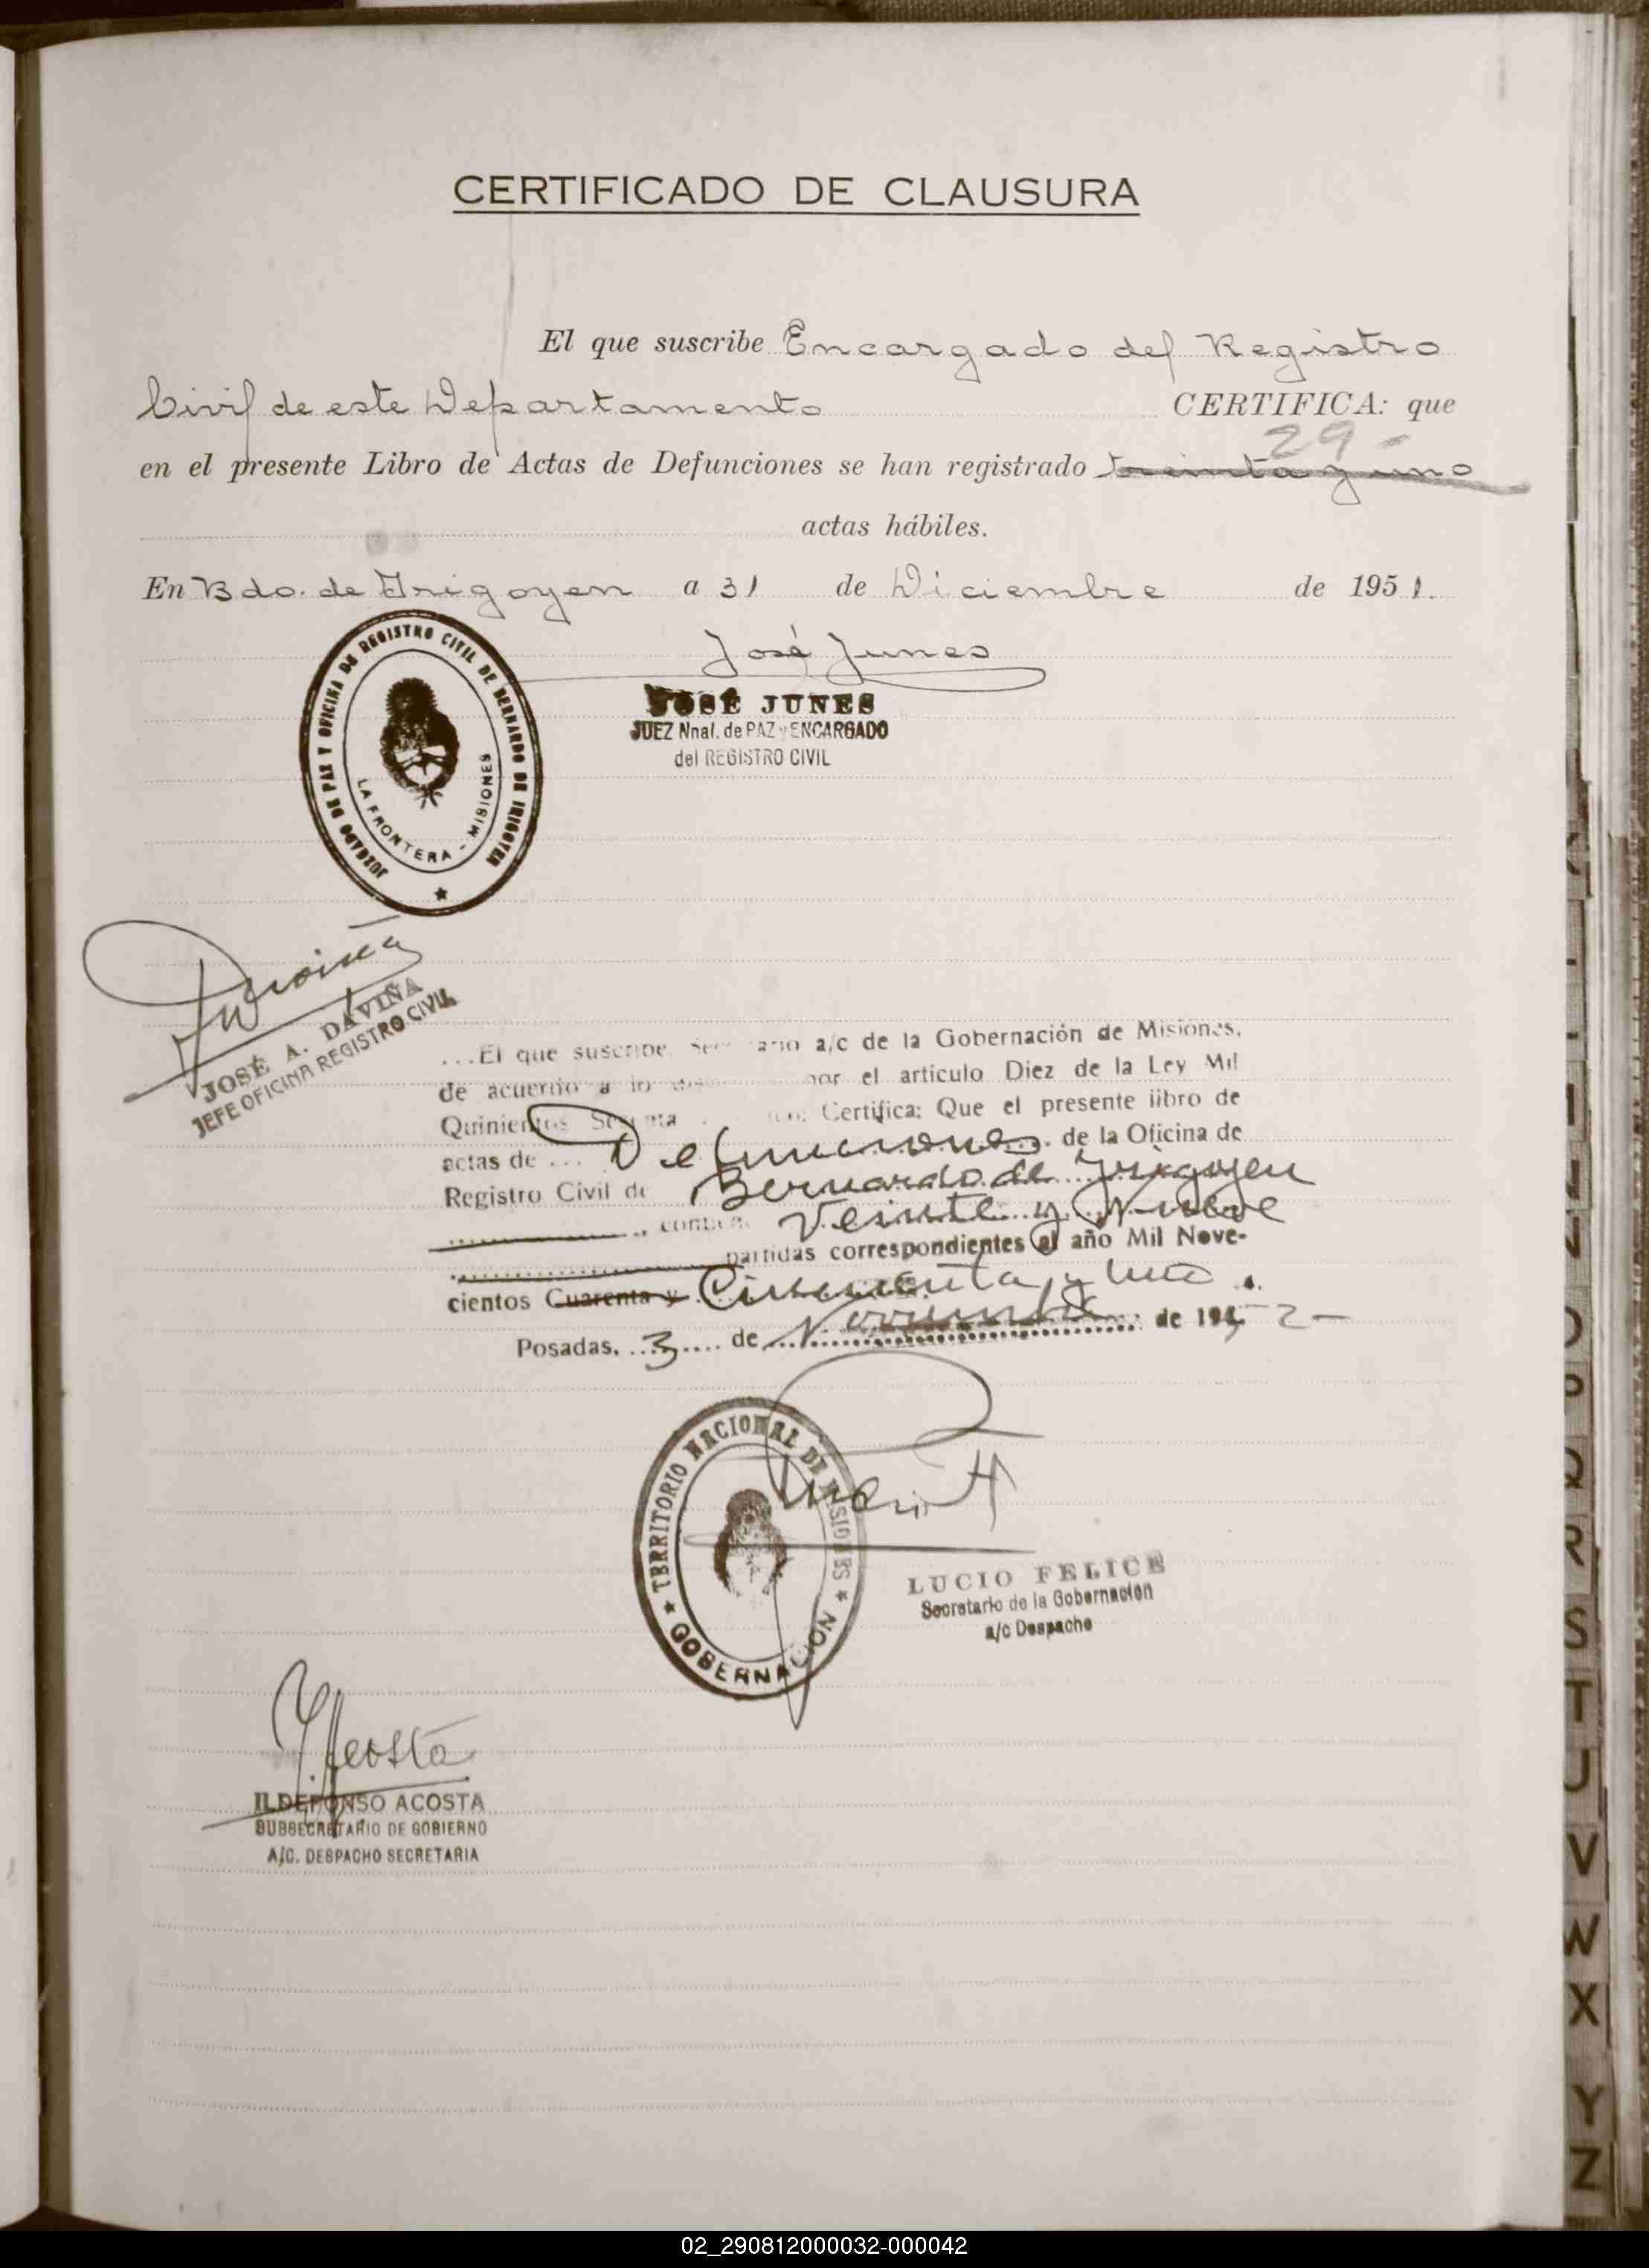 CERTIFICADO DE CLAUSURA
El que suscribe Encargado del Registro
Civil de este Departamento CERTIFICA: que
29 -
en el presente Libro de Actas de Defunciones se han registrado treinta y uno
actas hábiles.
En Bdo. de Irigoyen a 31 de Diciembre de 1951.
José Junes
JOSÉ JUNES
JUEZ Nnal. de PAZ y ENCARGADO
del REGISTRO CIVIL
JUZGADO DE PAZ Y OFICINA DE REGISTRO CIVIL DE BERNARDO DE IRIGOYEN
LA FRONTERA - MISIONES
JOSÉ A. DAVIÑA
JEFE OFICINA REGISTRO CIVIL
...El que suscribe, a/c de la Gobernación de Misiones,
de acuerdo a lo por el artículo Diez de la Ley Mil
Quinientos Certifica: Que el presente libro de
actas de ... Defunciones de la Oficina de
Registro Civil de Bernardo de Irigoyen
Veinte y Nueve
partidas correspondientes al año Mil Nove-
cientos Cuarenta y Cincuenta y uno.
Posadas, 3 de de 195 2-
TERRITORIO NACIONAL DE MISIONES
GOBERNACION
LUCIO FELICE
Secretario de la Gobernación
a/c Despacho
Acosta
ILDEFONSO ACOSTA
SUBSECRETARIO DE GOBIERNO
A/C. DESPACHO SECRETARIA
O
P
Q
R
S
T
U
V
W
X
Y
Z
02_290812000032-000042